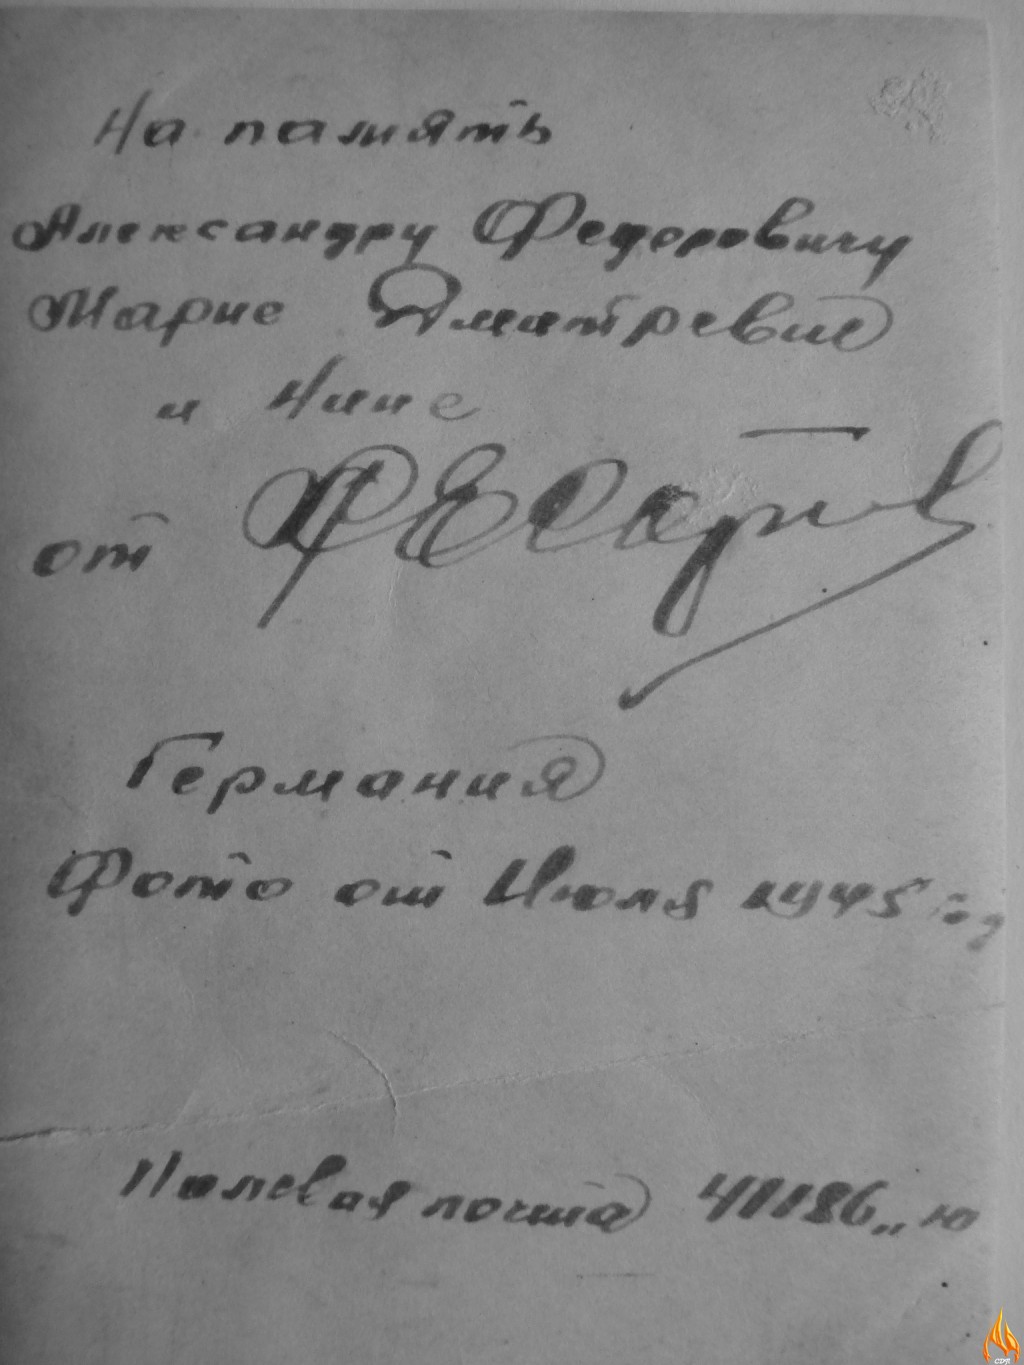 На память
Александру Федоровичу
Марие Дматревие
и Нине
от
Германия
Фото от Июля 1945 год
Полевая почта 41186 „ Ю
CDR